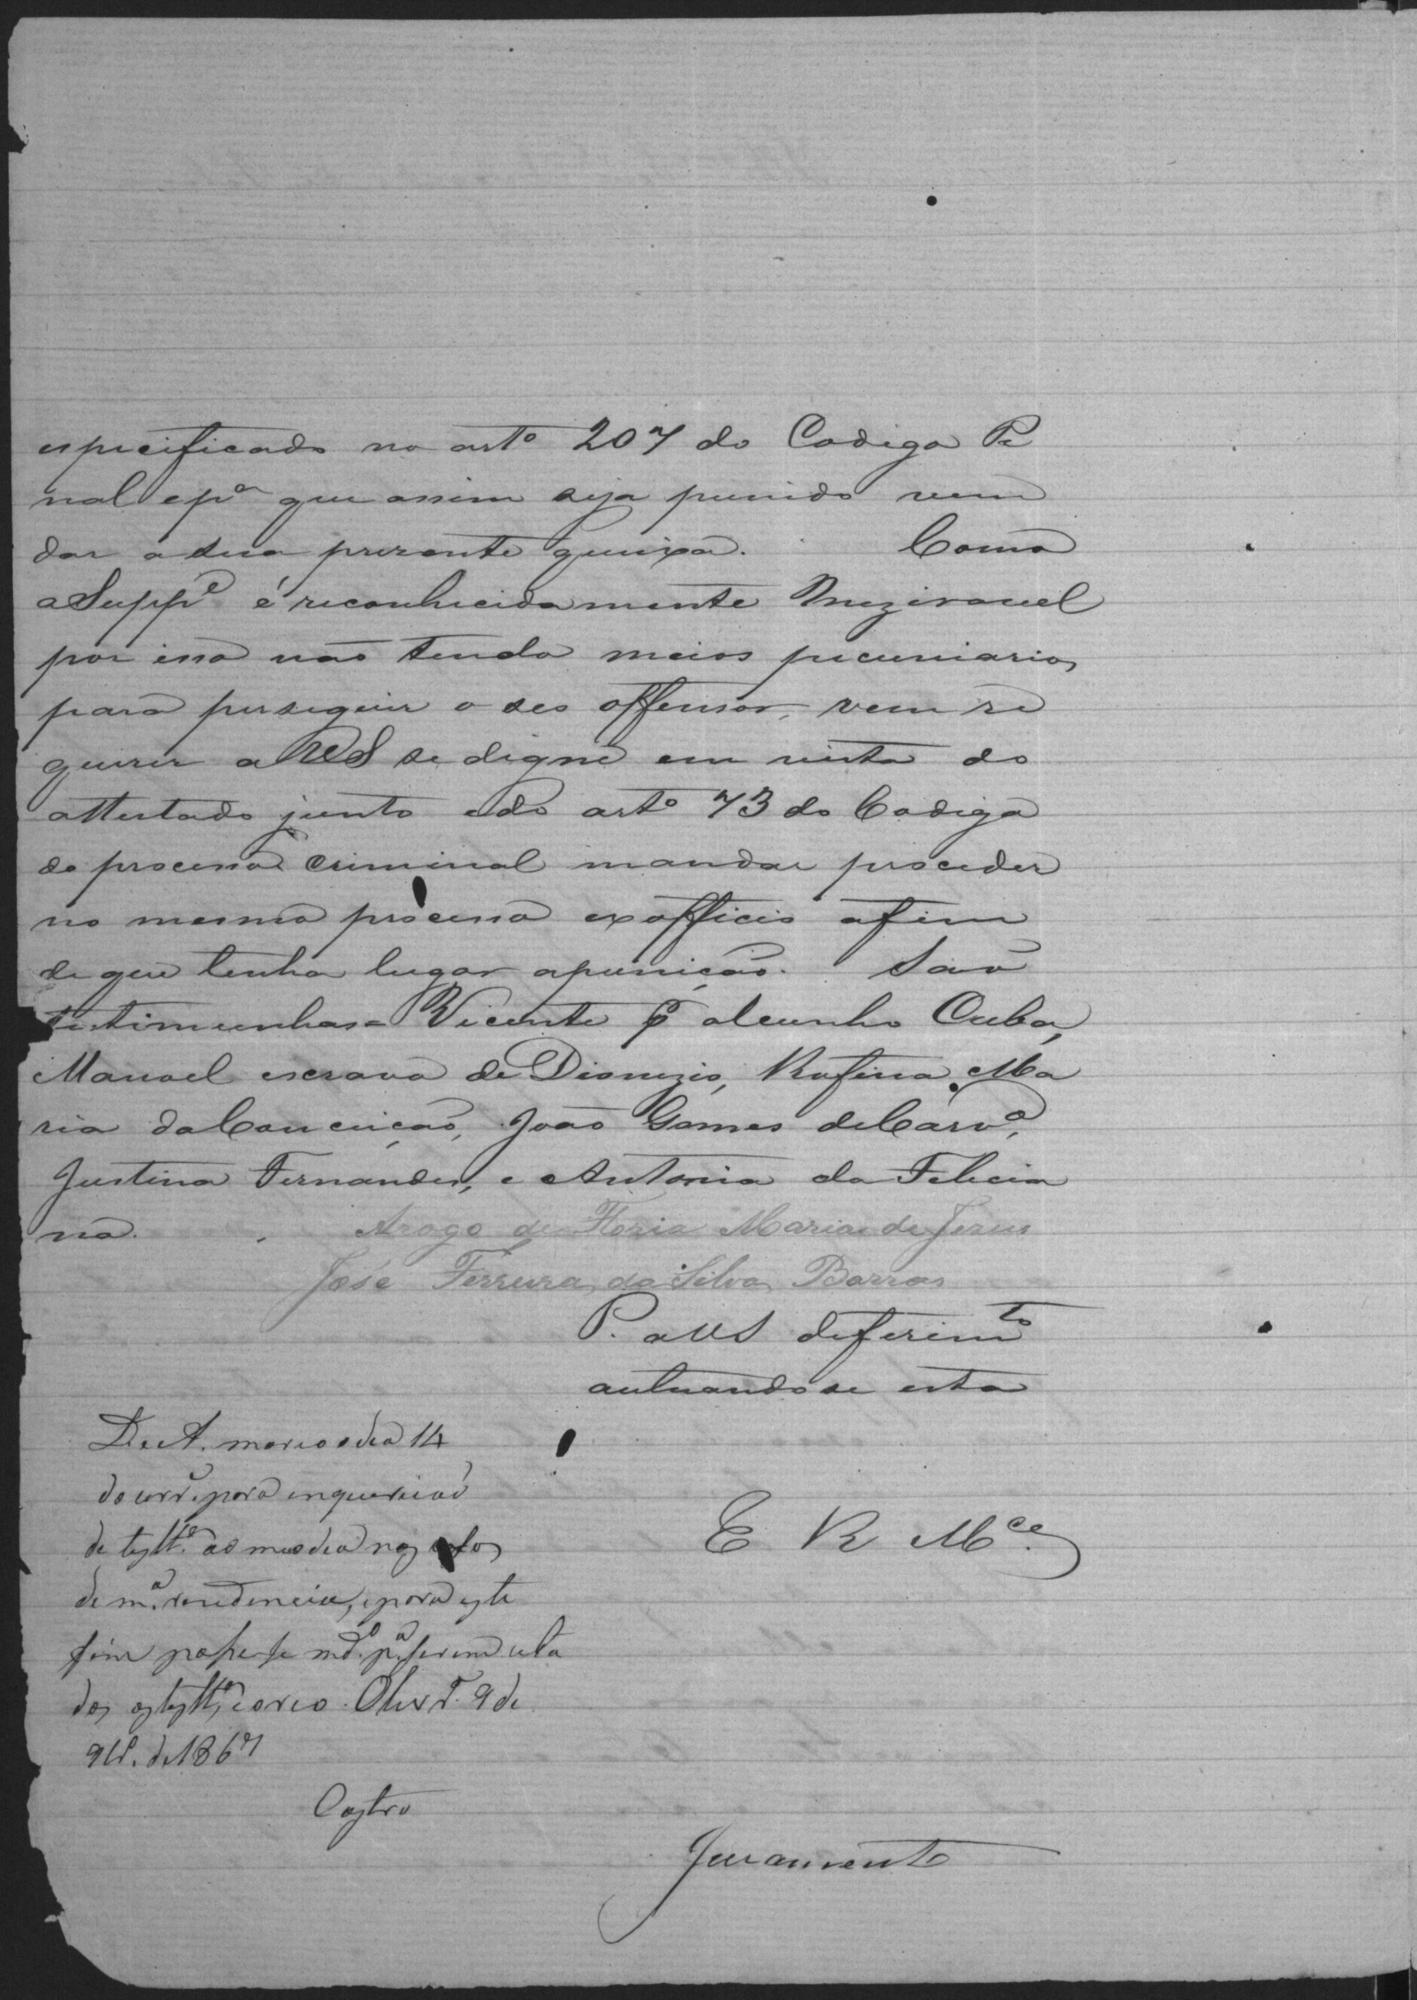 especificado no artº 207 do Codigo Pe
nal e pª que assim seja punido vem
dar a sua prezente queixa. Como
a Suppe é reconhecidamente Mizeravel
por isso não tendo meios pecuniarios
para perseguir o seo offensor, vem re
querer a VS se digne em vista do
attestado junto e do artº 73 do Codigo
do processo criminal mandar proceder
no mesmo processo exofficio afim
de que tenha lugar a punição. São
testimunhas = Vicente de alcunho Cuba,
Manoel escravo de Dionizio, Rufina Ma
ria da Conceição, João Gomes de Carvº,
Justina Fernandes, e Antonia da Felicia
na. Arogo de Maria de Jesus
José Ferreira da Silva Barros
P. a VS deferimto
autuando se esta
D. e A. marco o dia 14
do corre. para inquerição
de testªs ao meio dia na
de mª. residencia, e para este
fim passe-se mdº. pª serem cita
das as testªs, e o reo. 9 de
de 1867
Castro
E R Mce
Juramento